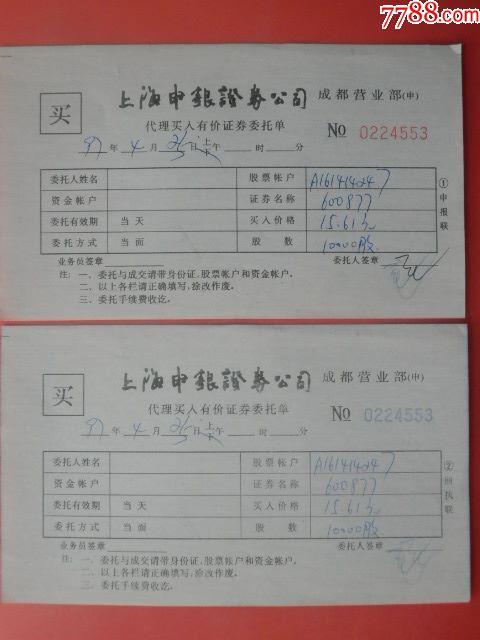 7788.com
上海申銀證券公司 成都营业部(申)
买
代理买入有价证券委托单 № 0224553
97年 4月 25日上/下午 时 分
委托人姓名 股票帐户 A161414247
资金帐户 证券名称 600877
委托有效期 当天 买入价格 15.61元
委托方式 当面 股数 10000股
①申报联
业务员签章 委托人签章
注:一、委托与成交请带身份证、股票帐户和资金帐户。
二、以上各栏请正确填写,涂改作废。
三、委托手续费收讫。
上海申銀證券公司 成都营业部(申)
买
代理买入有价证券委托单 № 0224553
97年 4月 25日上/下午 时 分
委托人姓名 股票帐户 A161414247
资金帐户 证券名称 600877
委托有效期 当天 买入价格 15.61元
委托方式 当面 股数 10000股
②回执联
业务员签章 委托人签章
注:一、委托与成交请带身份证、股票帐户和资金帐户。
二、以上各栏请正确填写,涂改作废。
三、委托手续费收讫。